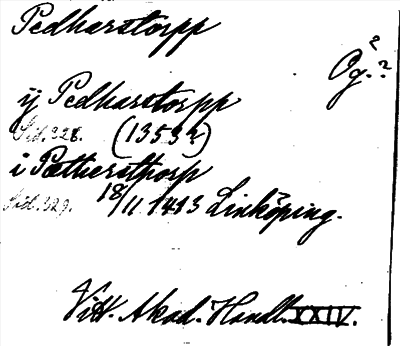 Pedharstorpp
Ög.?
ij Pedharstorpp
Sid. 328. (1353?)
i Pætherstthorp
Sid. 329. 18/11 1413 Linköping.
Vitt. Akad. Handl. XXIV.